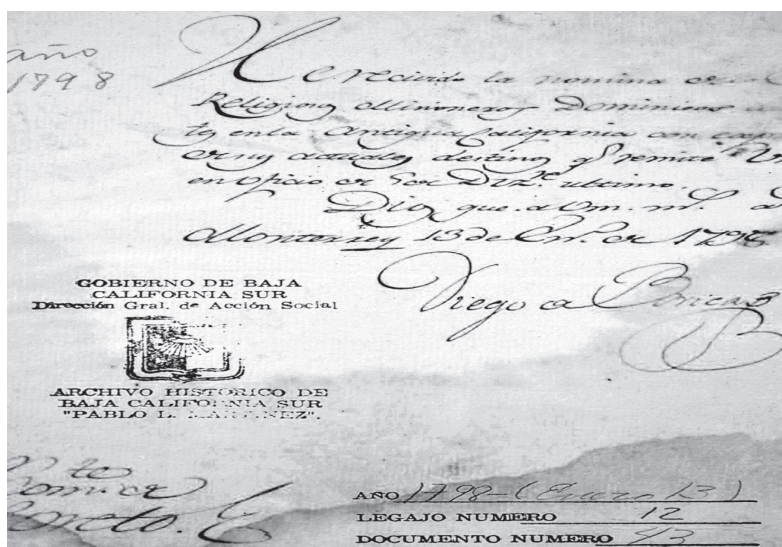 año
1798
He recivido la nomina de
Religiosos Misioneros Dominicos
en la Antigua California con
sus actuales destinos qe remite
en oficio de Dizre. ultimo.
Dios gue. a Vm. ms. as
Monterrey 13 de En.o de 1798
Diego de Borica
GOBIERNO DE BAJA
CALIFORNIA SUR
Dirección Gral. de Acción Social
ARCHIVO HISTORICO DE
BAJA CALIFORNIA SUR
"PABLO L. MARTINEZ".
te
Loreto.
AÑO 1798-(Enero 13)
LEGAJO NUMERO 12
DOCUMENTO NUMERO 43